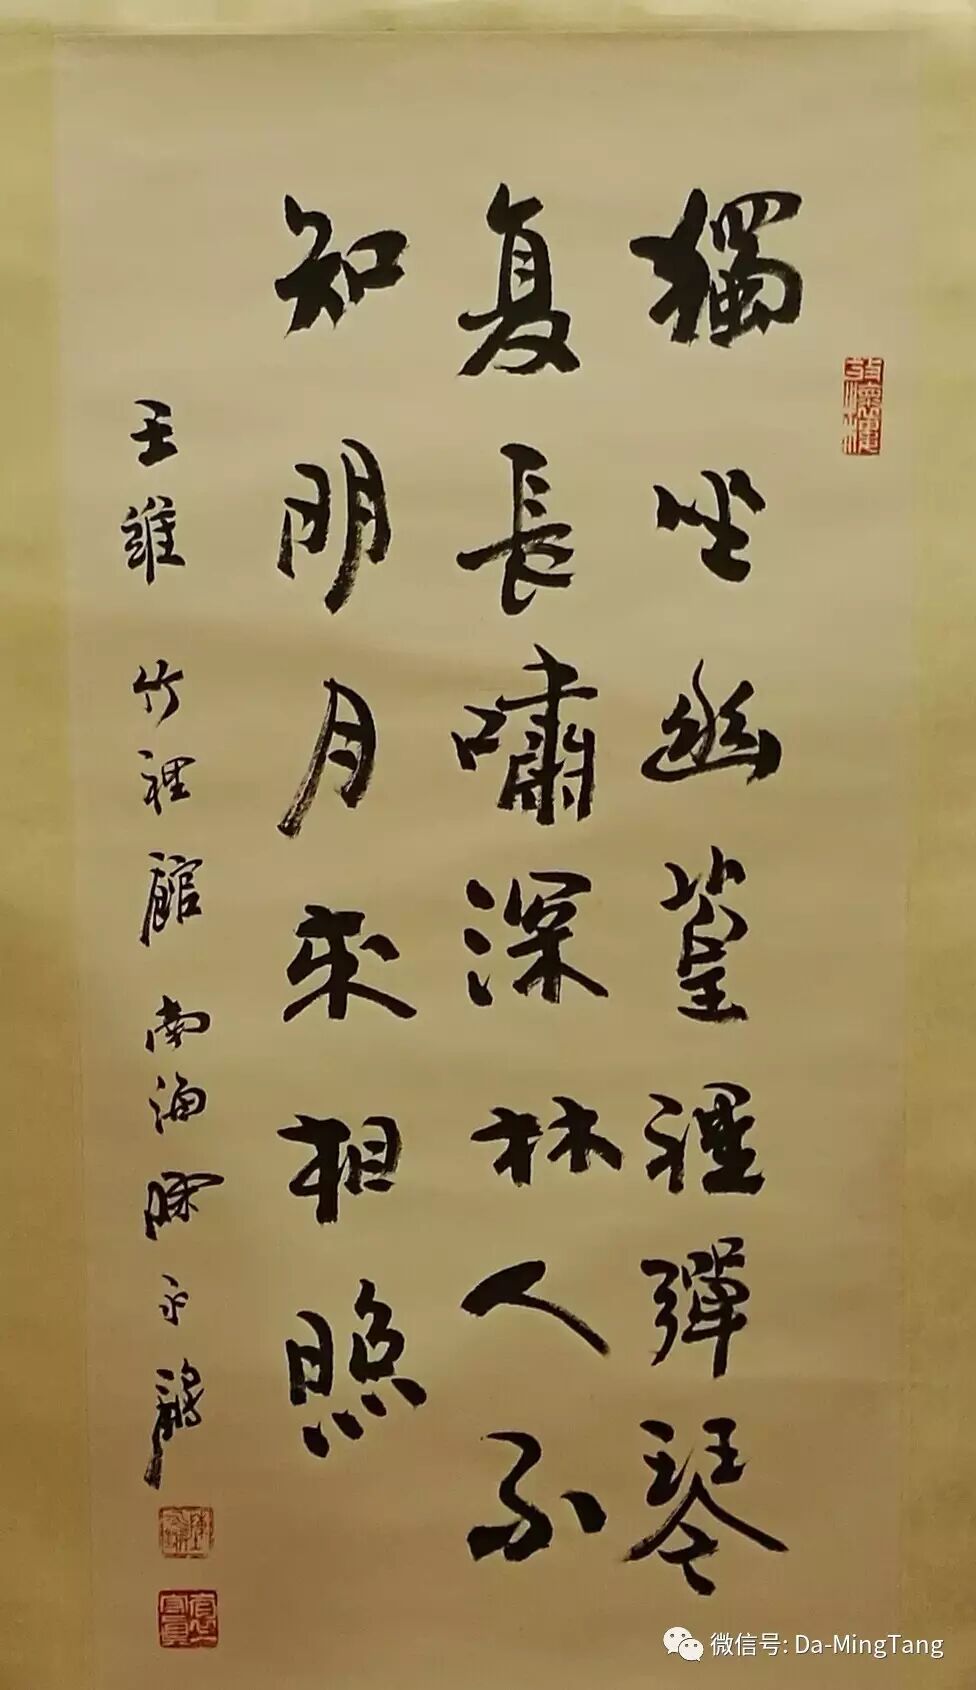 獨坐幽篁裡彈琴
复長嘯深林人不
知明月來相照
王維 竹裡館 南海陳永
微信号: Da-MingTang